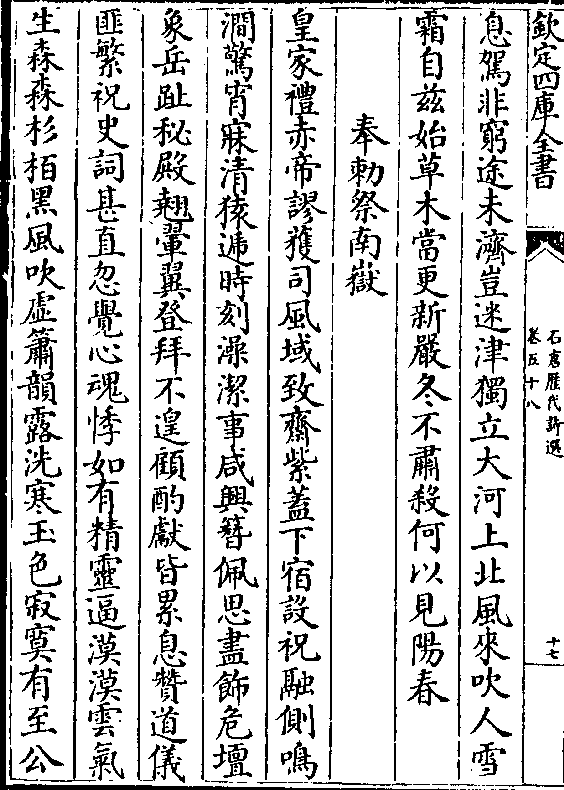 欽定四庫全書
石倉歷代詩選
卷五十八
十七
息駕非窮途未濟豈迷津獨立大河上北風來吹人雪
霜自兹始草木當更新嚴冬不肅殺何以見陽春
奉勅祭南嶽
皇家禮赤帝謬獲司風域致齋紫蓋下宿設祝融側鳴
澗驚宵寐清猿遞時刻澡潔事咸興簪佩思盡飾危壇
象岳趾秘殿翹翬翼登拜不遑顧酌獻皆累息贊道儀
匪繁祝史詞甚直忽覺心魂悸如有精靈逼漠漠雲氣
生森森杉栢黑風吹虛簫韻露洗寒玉色寂寞有至公